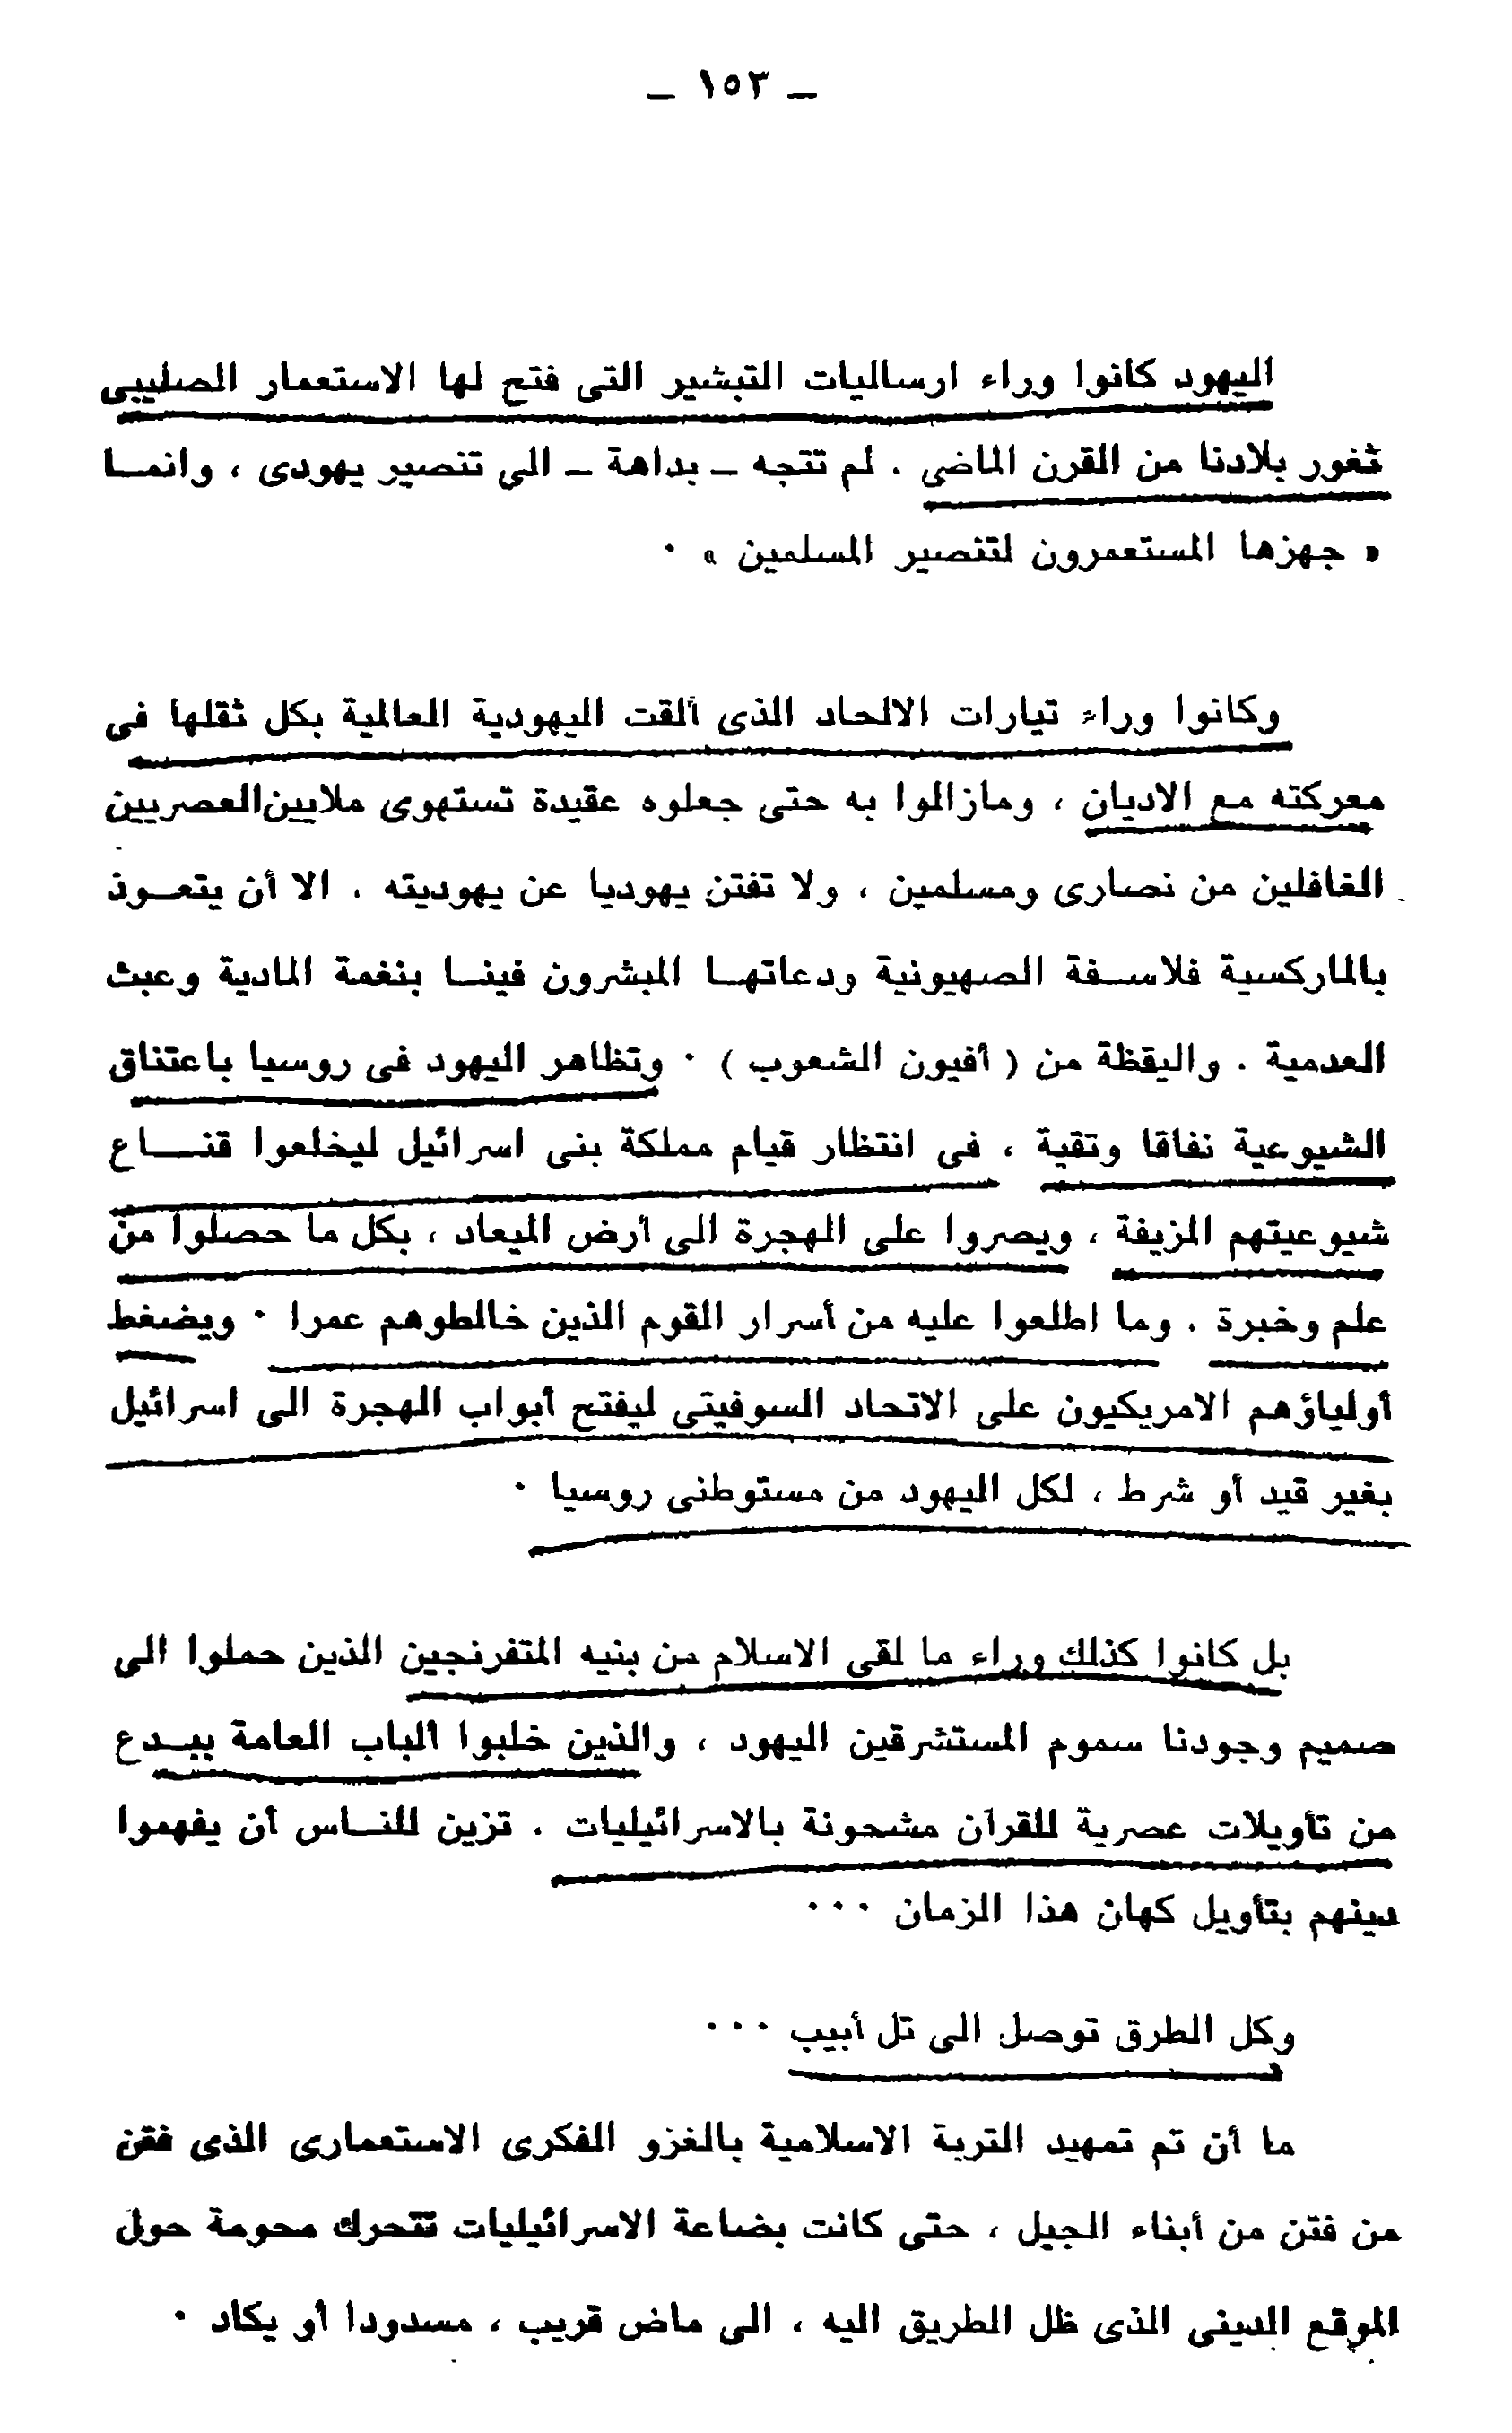 ـ ١٥٣ ـ
اليهود كانوا وراء ارساليات التبشير التى فتح لها الاستعمار الصليبى
ثغور بلادنا من القرن الماضى . لم تتجه ـ بداهة ـ الى تنصير يهودى ، وانمـا
« جهزها المستعمرون لتنصير المسلمين » ٠
وكانوا وراء تيارات الالحاد الذى ألقت اليهودية العالمية بكل ثقلها فى
معركته مع الاديان ، ومازالوا به حتى جعلوه عقيدة تستهوى ملايين العصريين
الغافلين من نصارى ومسلمين ، ولا تفتن يهوديا عن يهوديته . الا أن يتعـوذ
بالماركسية فلاسـفة الصهيونية ودعاتهـا المبشرون فينـا بنغمة المادية وعبث
العدمية . واليقظة من ( أفيون الشعوب ) ٠ وتظاهر اليهود فى روسيا باعتناق
الشيوعية نفاقا وتقية ، فى انتظار قيام مملكة بنى اسرائيل ليخلعوا قنـــاع
شيوعيتهم المزيفة ، ويصروا على الهجرة الى أرض الميعاد ، بكل ما حصلوا من
علم وخبرة . وما اطلعوا عليه من أسرار القوم الذين خالطوهم عمرا ٠ ويضغط
أولياؤهم الامريكيون على الاتحاد السوفيتى ليفتح أبواب الهجرة الى اسرائيل
بغير قيد أو شرط ، لكل اليهود من مستوطنى روسيا ٠
بل كانوا كذلك وراء ما لقى الاسلام من بنيه المتفرنجين الذين حملوا الى
صميم وجودنا سموم المستشرقين اليهود ، والذين خلبوا ألباب العامة ببـدع
من تأويلات عصرية للقرآن مشحونة بالاسرائيليات . تزين للنـاس أن يفهموا
دينهم بتأويل كهان هذا الزمان ٠٠٠
وكل الطرق توصل الى تل أبيب ٠٠٠
ما أن تم تمهيد التربة الاسلامية بالغزو الفكرى الاستعمارى الذى فتن
من فتن من أبناء الجيل ، حتى كانت بضاعة الاسرائيليات تتحرك محومة حول
الموقع الدينى الذى ظل الطريق اليه ، الى ماض قريب ، مسدودا أو يكاد ٠